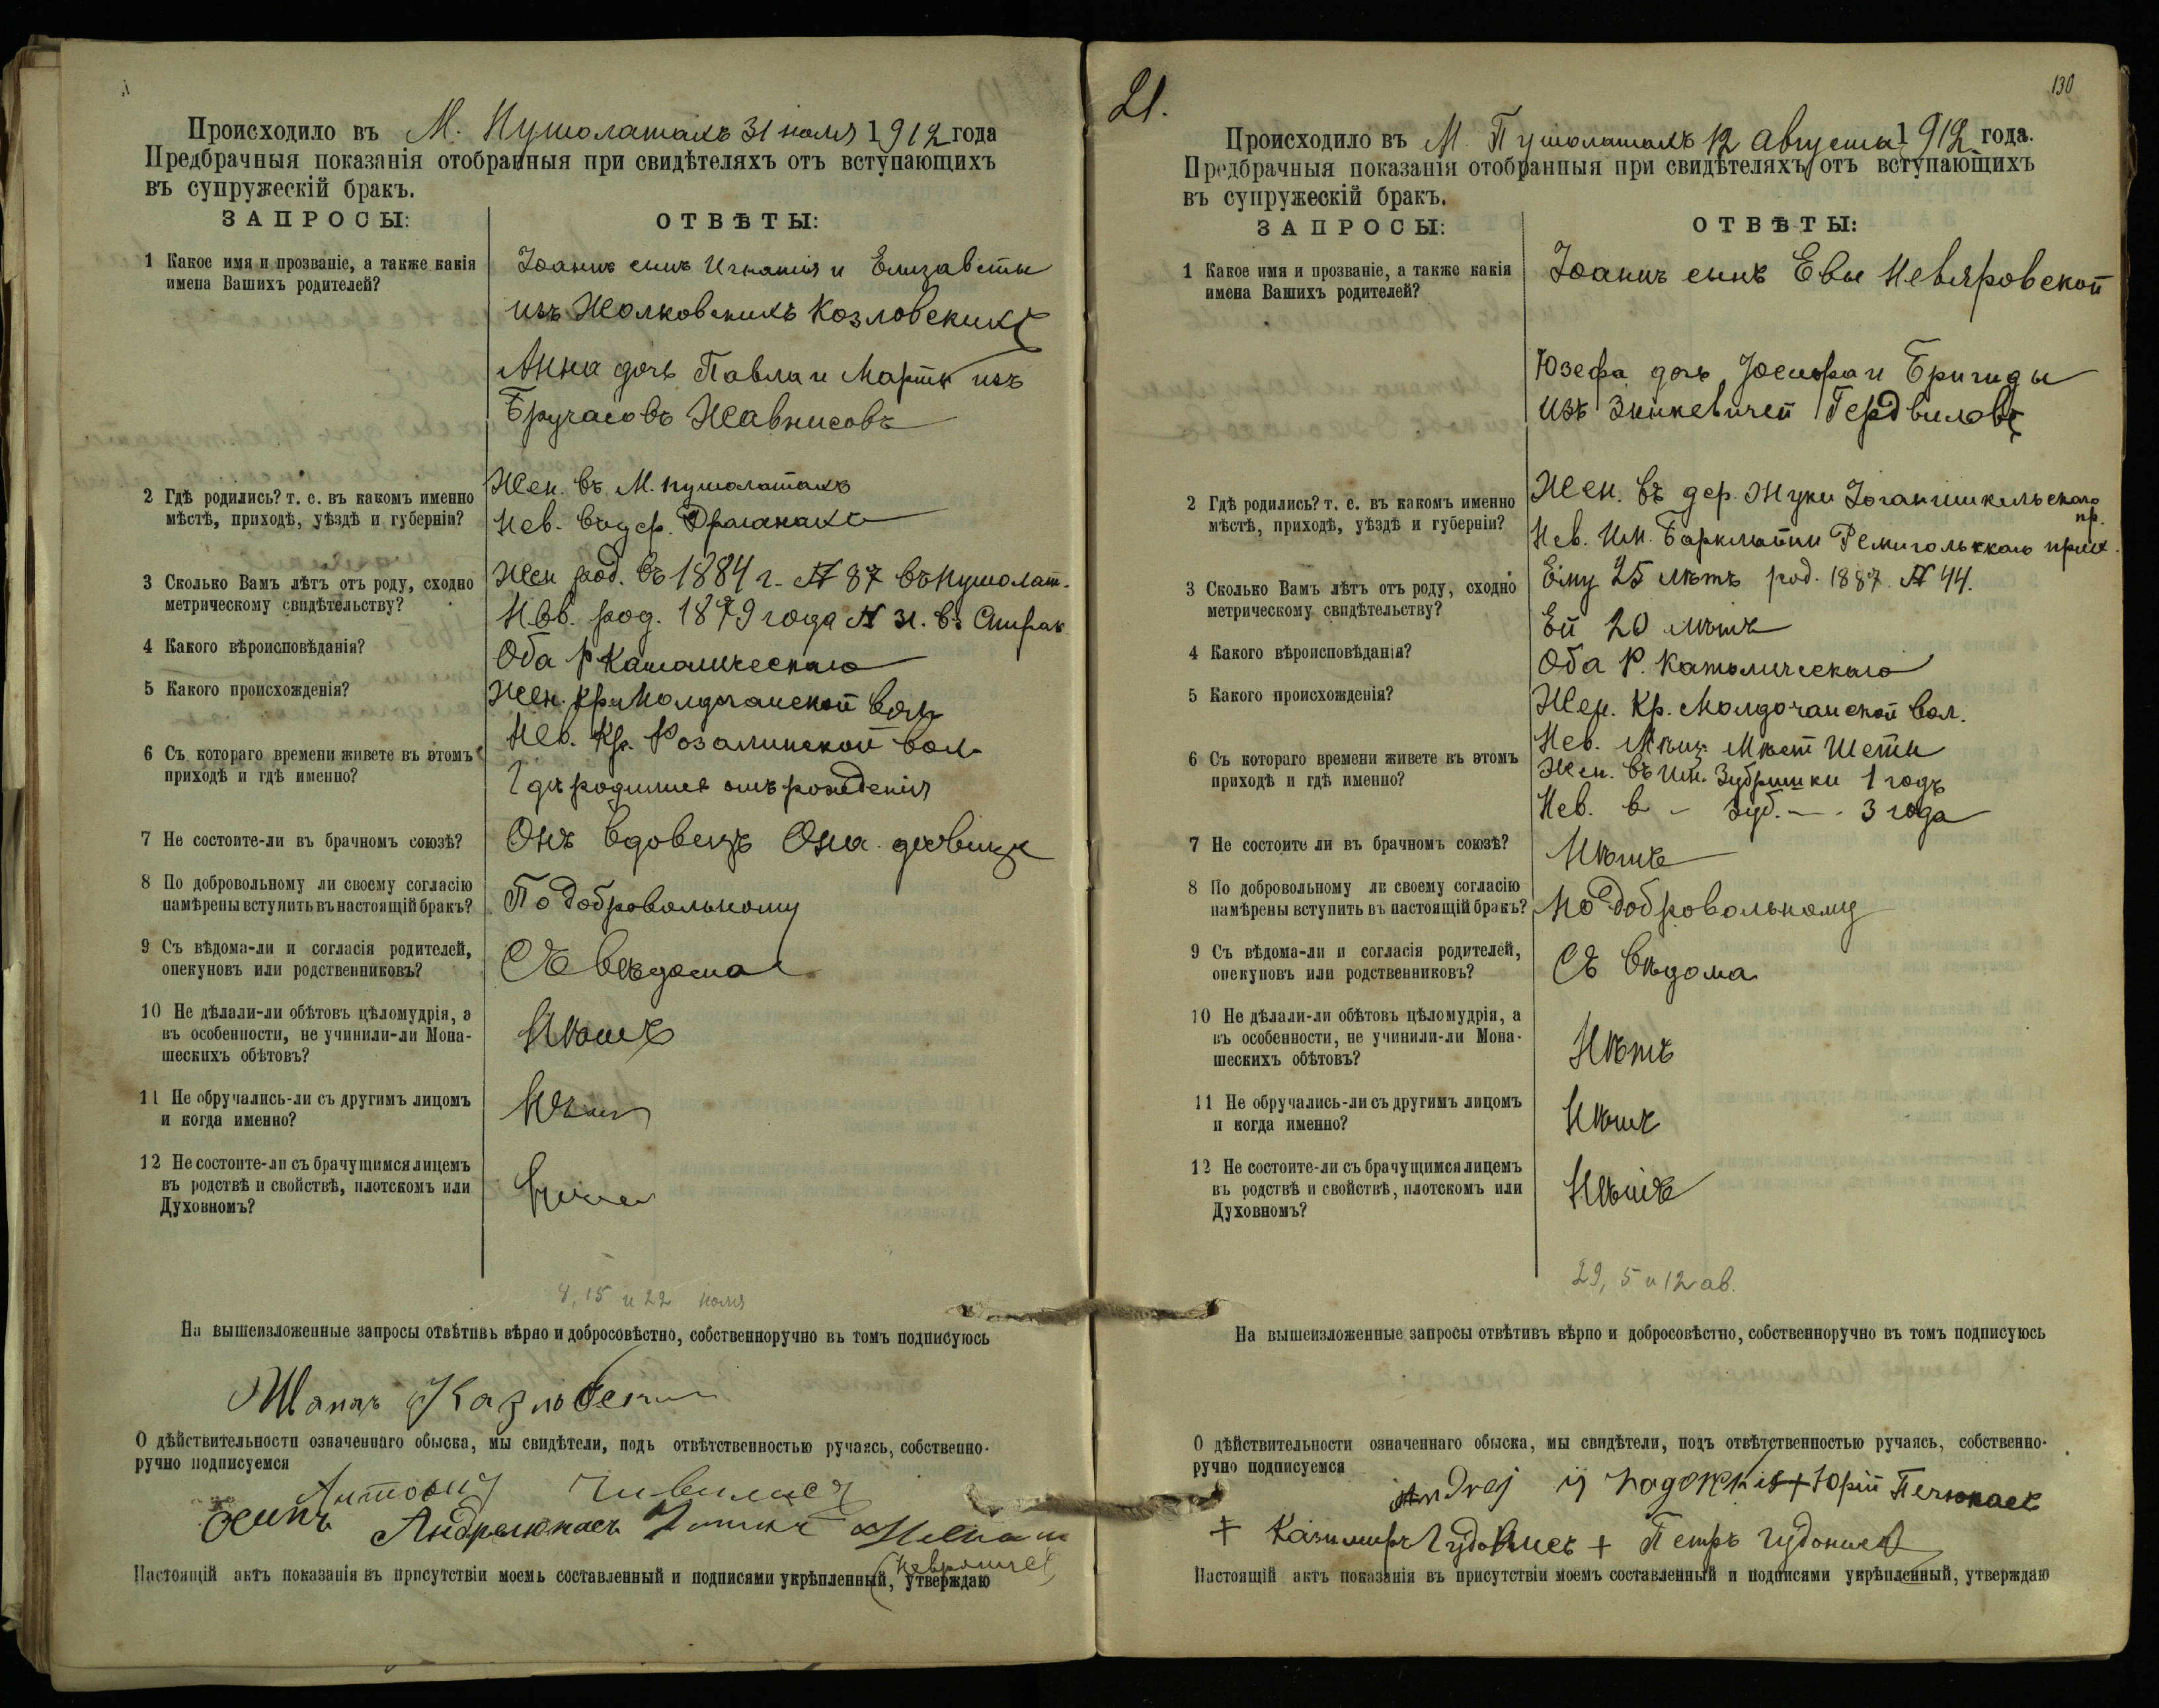 Происходило въ М. Пушолатахъ 31 іюля 1912 года
Предбрачныя показанія отобранныя при свидѣтеляхъ отъ вступающихъ
въ супружескій бракъ.
ЗАПРОСЫ: ОТВѢТЫ:
1 Какое имя и прозваніе, а также какія
имена Вашихъ родителей?
Іоаннъ сынъ Игнатія и Елизаветы
изъ Жолковскихъ Козловскихъ
Анна дочь Павла и Марты изъ
2 Гдѣ родились? т. е. въ какомъ именно
мѣстѣ, приходѣ, уѣздѣ и губерніи?
Жен. въ М. Пушолатахъ
Нев. въ дер.
3 Сколько Вамъ лѣтъ отъ роду, сходно
метрическому свидѣтельству?
Жен род. въ 1884 г. № 87 въ Пушолат.
Нев. род. 1879 года № 31. въ
4 Какого вѣроисповѣданія?
Оба Р Католическаго
5 Какого происхожденія?
Жен. кр. Молдочанской вол
Нев. Кр. Розалинской вол.
6 Съ котораго времени живете въ этомъ
приходѣ и гдѣ именно?
Гдѣ родились отъ рожденія
7 Не состоите-ли въ брачномъ союзѣ?
Онъ вдовецъ Она дѣвица
8 По добровольному ли своему согласію
намѣрены вступить въ настоящій бракъ?
По добровольному
9 Съ вѣдома-ли и согласія родителей,
опекуновъ или родственниковъ?
Съ вѣдома
10 Не дѣлали-ли обѣтовъ цѣломудрія, а
въ особенности, не учинили-ли Мона-
шескихъ обѣтовъ?
Нѣтъ
11 Не обручались-ли съ другимъ лицомъ
и когда именно?
Нѣтъ
12 Не состоите-ли съ брачущимся лицемъ
въ родствѣ и свойствѣ, плотскомъ или
Духовномъ?
Нѣтъ
8, 15 и 22 іюля
На вышеизложенные запросы отвѣтивъ вѣрно и добросовѣстно, собственноручно въ томъ подписуюсь
О дѣйствительности означеннаго обыска, мы свидѣтели, подъ отвѣтственностью ручаясь, собственно-
ручно подписуемся
Антоній
Осипъ
Настоящій актъ показанія въ присутствіи моемъ составленный и подписями укрѣпленный, утверждаю
21.
130
Происходило въ М. Пушолатахъ 12 Августа 1912 года.
Предбрачныя показанія отобранныя при свидѣтеляхъ отъ вступающихъ
въ супружескій бракъ.
ЗАПРОСЫ: ОТВѢТЫ:
1 Какое имя и прозваніе, а также какія
имена Вашихъ родителей?
Іоаннъ сынъ Евы Невяровской
Юзефа дочь Іосифа и Бригиды
изъ Зинкевичей Гердвиловъ
2 Гдѣ родились? т. е. въ какомъ именно
мѣстѣ, приходѣ, уѣздѣ и губерніи?
Жен. въ дер. Жуки Іоганишкельскаго
пр.
Нев. Им. Ремигольскаго прих.
3 Сколько Вамъ лѣтъ отъ роду, сходно
метрическому свидѣтельству?
Ему 25 лѣтъ род. 1887. № 44.
Ей 20 лѣтъ
4 Какого вѣроисповѣданія?
Оба Р. Католическаго
5 Какого происхожденія?
Жен. Кр. Молдочанской вол.
Нев. Мѣщ.
6 Съ котораго времени живете въ этомъ
приходѣ и гдѣ именно?
Жен. въ Им. Зубришки 1 годъ
Нев. в - Зуб. — 3 года
7 Не состоите ли въ брачномъ союзѣ?
Нѣтъ
8 По добровольному ли своему согласію
намѣрены вступить въ настоящій бракъ?
По добровольному
9 Съ вѣдома-ли и согласія родителей,
опекуновъ или родственниковъ?
Съ вѣдома
10 Не дѣлали-ли обѣтовъ цѣломудрія, а
въ особенности, не учинили-ли Мона-
шескихъ обѣтовъ?
Нѣтъ
11 Не обручались-ли съ другимъ лицомъ
и когда именно?
Нѣтъ
12 Не состоите-ли съ брачущимся лицемъ
въ родствѣ и свойствѣ, плотскомъ или
Духовномъ?
Нѣтъ
29, 5 и 12 ав.
На вышеизложенные запросы отвѣтивъ вѣрно и добросовѣстно, собственноручно въ томъ подписуюсь
О дѣйствительности означеннаго обыска, мы свидѣтели, подъ отвѣтственностью ручаясь, собственно-
ручно подписуемся
Andrej + Юрій
+ Казимиръ Гудонисъ + Петръ Гудонисъ
Настоящій актъ показанія въ присутствіи моемъ составленный и подписями укрѣпленный, утверждаю